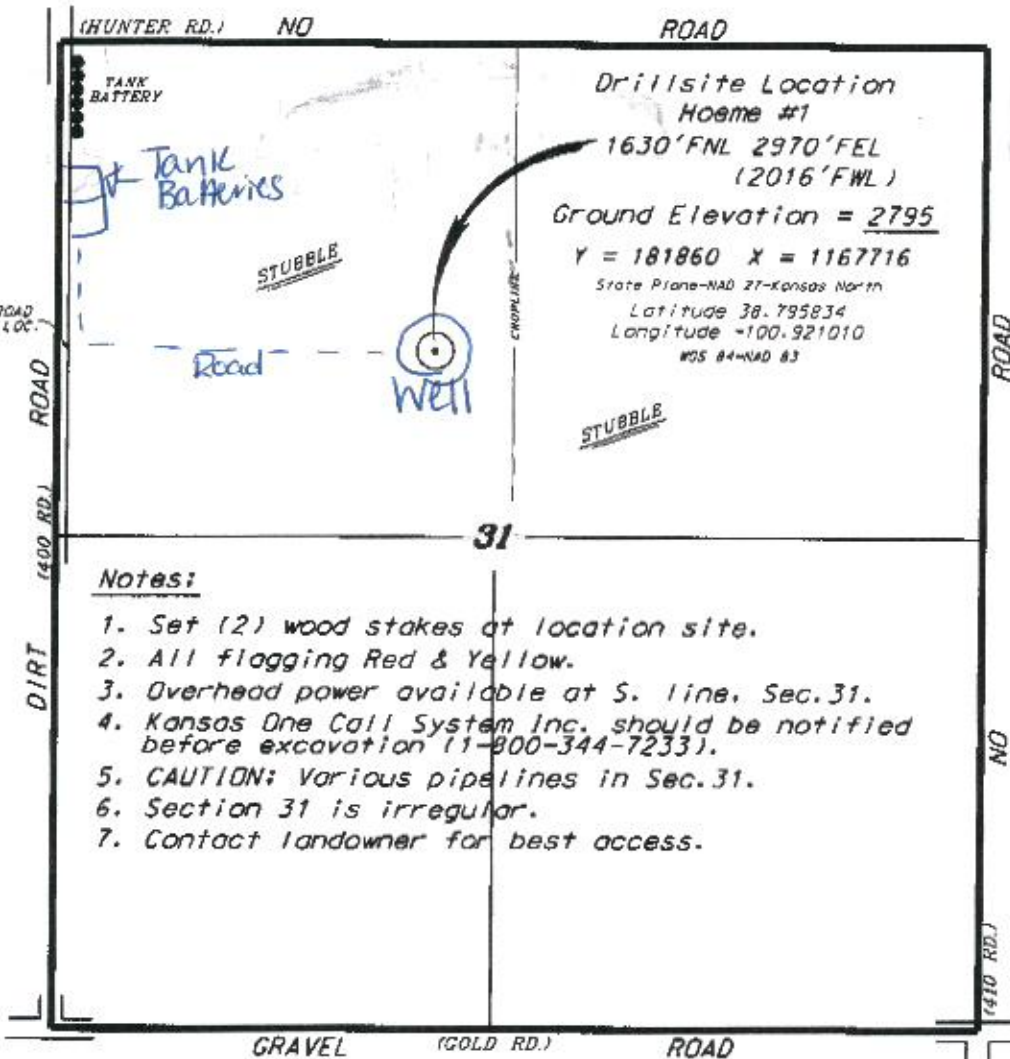 (HUNTER RD.) NO ROAD
TANK
BATTERY
Tank
Batteries
Drillsite Location
Hoeme #1
1630'FNL 2970'FEL
(2016'FWL)
Ground Elevation = 2795
Y = 181860 X = 1167716
State Plane-NAD 27-Kansas North
Latitude 38.795834
Longitude -100.921010
WGS 84-NAD 83
STUBBLE
CROPLINE
ROAD
LOC.
Road
Well
STUBBLE
ROAD
ROAD
(400 RD.)
31
DIRT
NO
Notes:
1. Set (2) wood stakes at location site.
2. All flagging Red & Yellow.
3. Overhead power available at S. line, Sec.31.
4. Kansas One Call System Inc. should be notified
before excavation (1-800-344-7233).
5. CAUTION: Various pipelines in Sec.31.
6. Section 31 is irregular.
7. Contact landowner for best access.
(410 RD.)
GRAVEL (GOLD RD.) ROAD